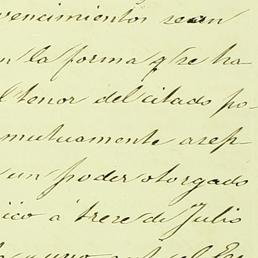 vencimientos sean
n la forma q'se ha
l tenor del citado po-
mutuamente acep-
un poder otorgado
ico á trece de Julio